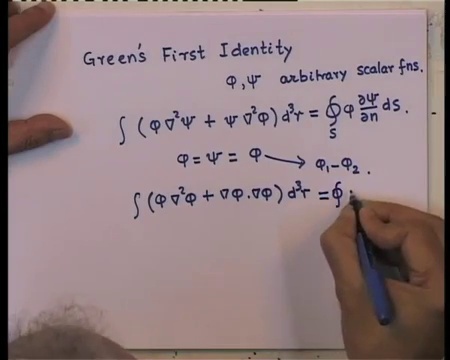 Green's First Identity
φ, ψ arbitrary scalar fns.
∫ (φ ∇²ψ + ψ ∇²φ) d³r = ∮_S φ ∂ψ/∂n dS.
φ = ψ = φ ⟶ φ₁ – φ₂.
∫ (φ ∇²φ + ∇φ . ∇φ) d³r = ∮